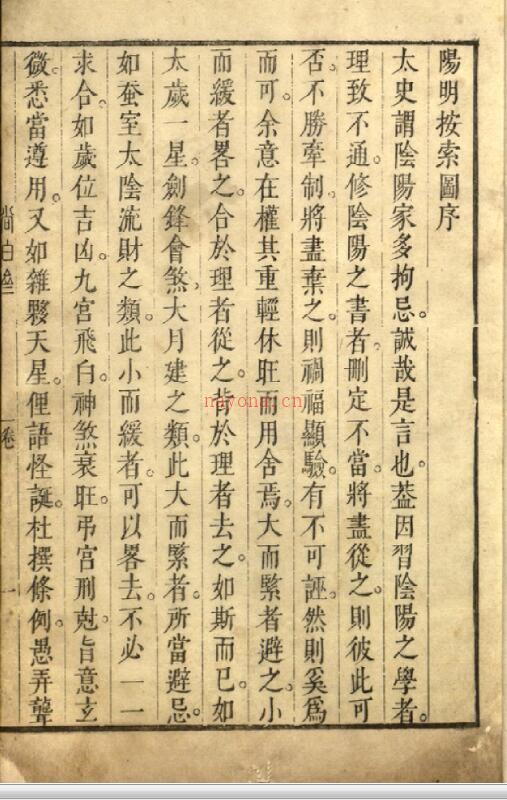 陽明按索圖序
太史謂陰陽家多拘忌。誠哉是言也。葢因習陰陽之學者。
理致不通。修陰陽之書者。刪定不當。將盡從之。則彼此可
否。不勝牽制。將盡棄之。則禍福顯驗。有不可誣。然則奚爲
而可。余意在權其重輕休旺而用舍焉。大而緊者避之。小
而緩者畧之。合於理者從之。背於理者去之。如斯而已。如
太歲一星。劍鋒會煞。大月建之類。此大而緊者。所當避忌。
如蚕室太陰流財之類。此小而緩者。可以畧去。不必一一
求合。如歲位吉凶。九宫飛白。神煞衰旺。弔宫刑尅。旨意玄
微。悉當遵用。又如雜夥天星。俚語怪誕。杜撰條例。愚弄聾
卷
一
nayona.cn